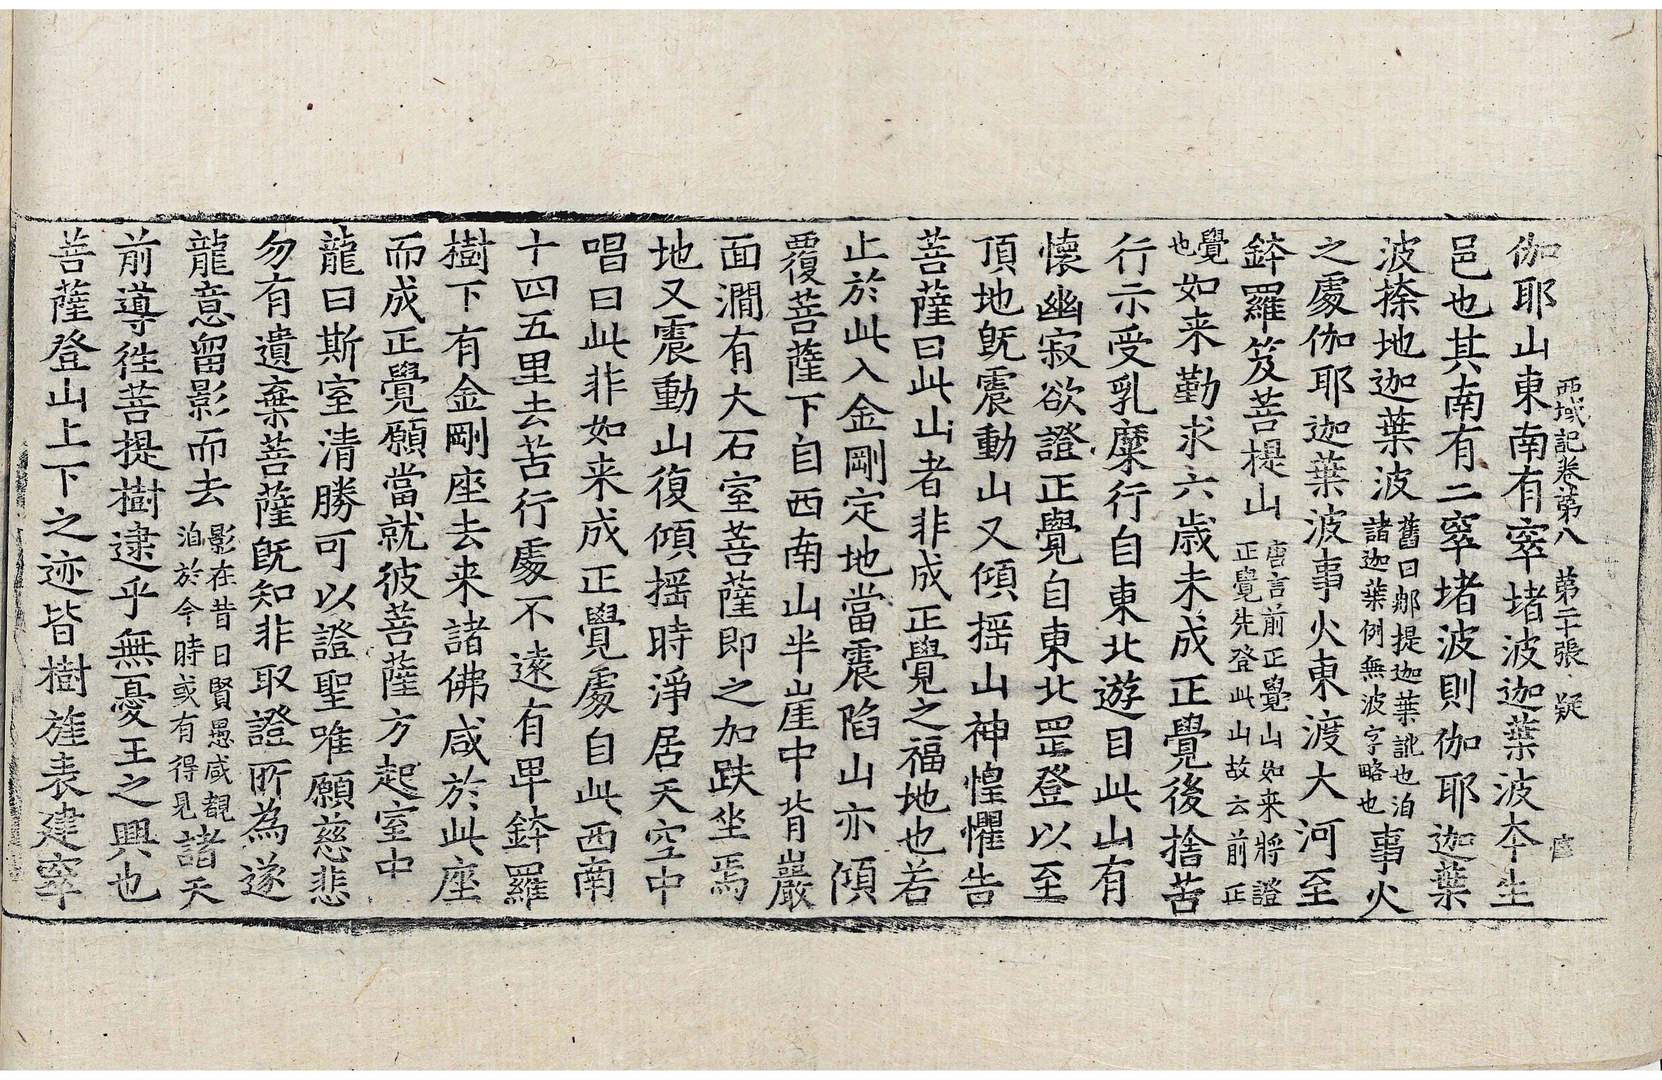 西域記卷第八 第二十張 疑
伽耶山東南有窣堵波迦葉波本生
邑也其南有二窣堵波則伽耶迦葉
波捺地迦葉波舊曰那提迦葉訛也洎諸迦葉例無波字略也事火
之處伽耶迦葉波事火東渡大河至
鉢羅笈菩提山唐言前正覺山如来將證正覺先登此山故云前正
覺也如来勤求六歲未成正覺後捨苦
行示受乳糜行自東北遊目此山有
懷幽寂欲證正覺自東北罡登以至
頂地旣震動山又傾揺山神惶懼告
菩薩曰此山者非成正覺之福地也若
止於此入金剛定地當震陷山亦傾
覆菩薩下自西南山半崖中背巖
面澗有大石室菩薩即之加趺坐焉
地又震動山復傾揺時淨居天空中
唱曰此非如来成正覺處自此西南
十四五里去苦行處不遠有卑鉢羅
樹下有金剛座去来諸佛咸於此座
而成正覺願當就彼菩薩方起室中
龍曰斯室清勝可以證聖唯願慈悲
勿有遺棄菩薩旣知非取證所為遂
龍意留影而去影在昔日賢愚咸覩洎於今時或有得見諸天
前導徃菩提樹逮乎無憂王之興也
菩薩登山上下之迹皆樹旌表建窣